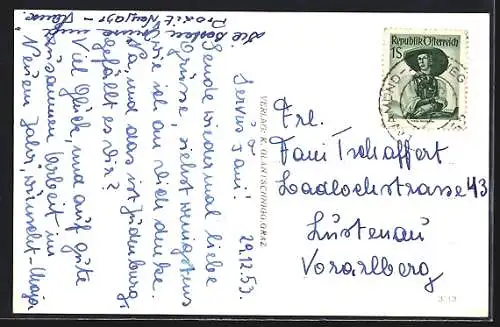 29.12.53.
Servus Fani!
Sende wiedermal liebe
Grüsse, siehst wenigstens
wie ich an Dich denke.
Na, und das ist Judenburg,
gefällt es Dir?
Viel Glück, und auf gute
Zusammen Arbeit im
Neuen Jahr, wünscht
Die besten
Prosit Neujahr
VERLAG: K. GLANTSCHNIGG GRAZ
Republik Österreich
1S
Frl.
Fani Tschaffert
Loadlochstrasse 43
Lustenau
Vorarlberg